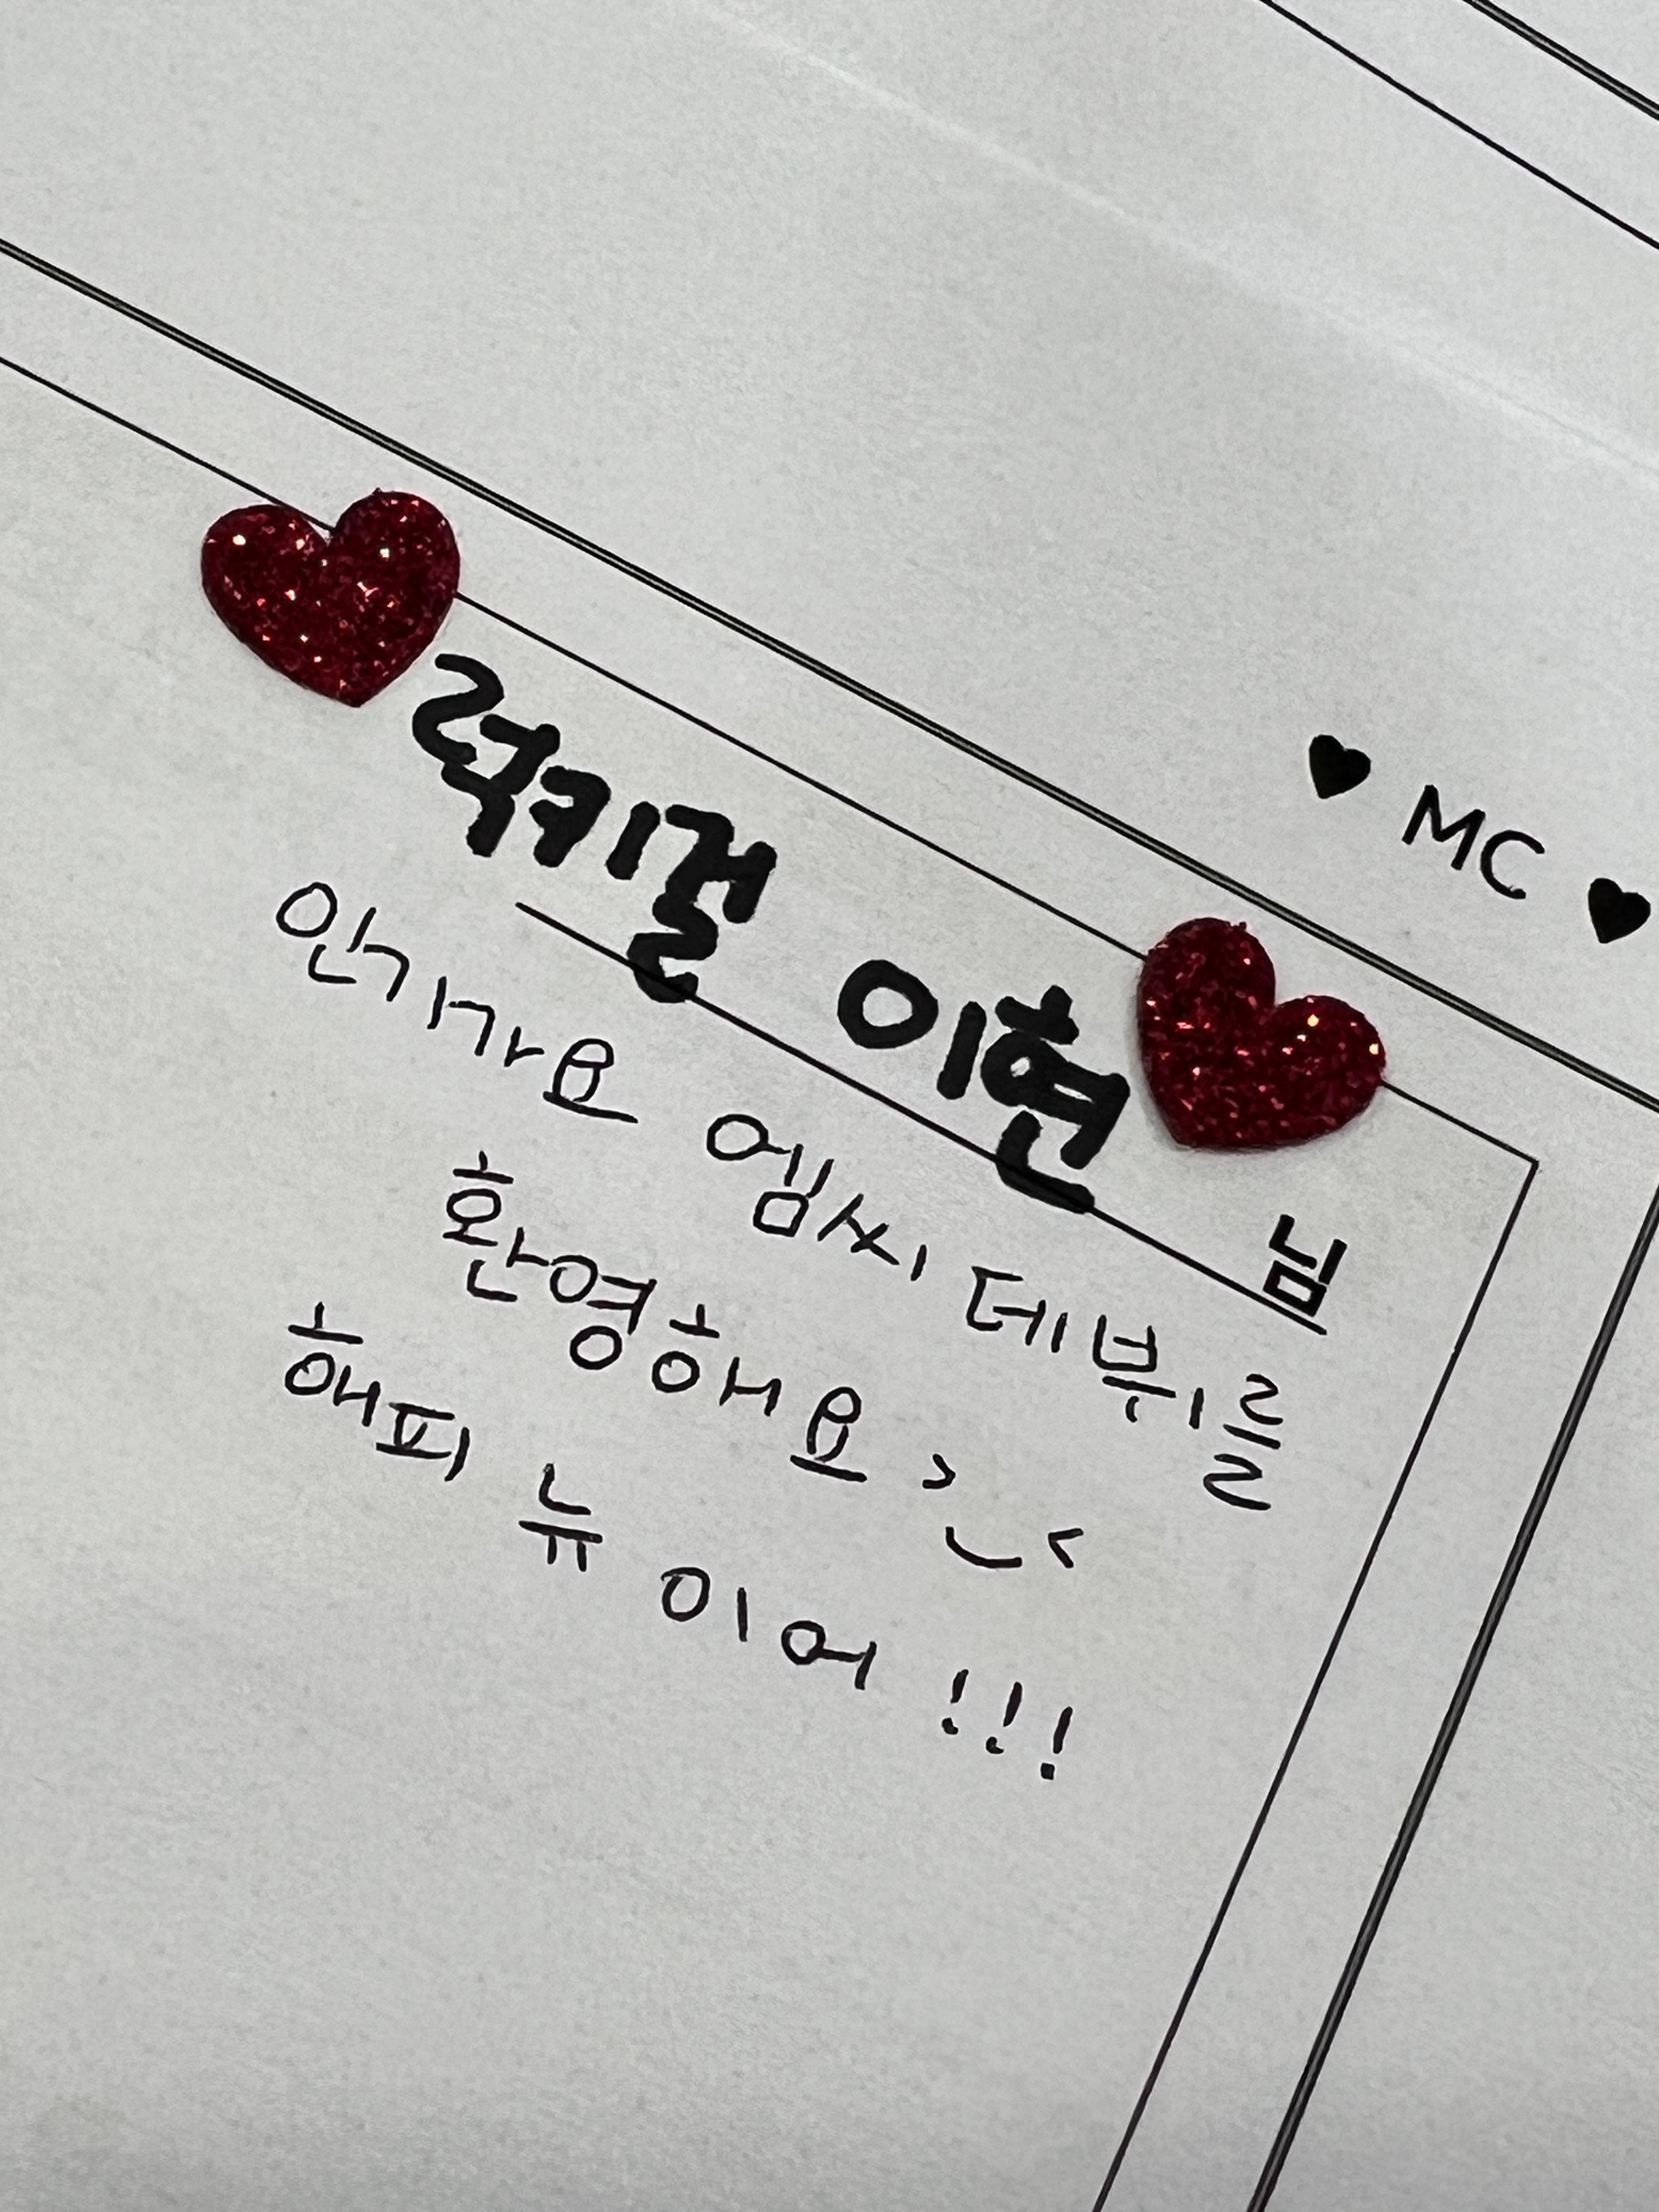 ♥ MC ♥
럭키걸 이현 님
안기나요 엠씨 데뷔를
환영해요 >‿<
해피 뉴 이어 !!!